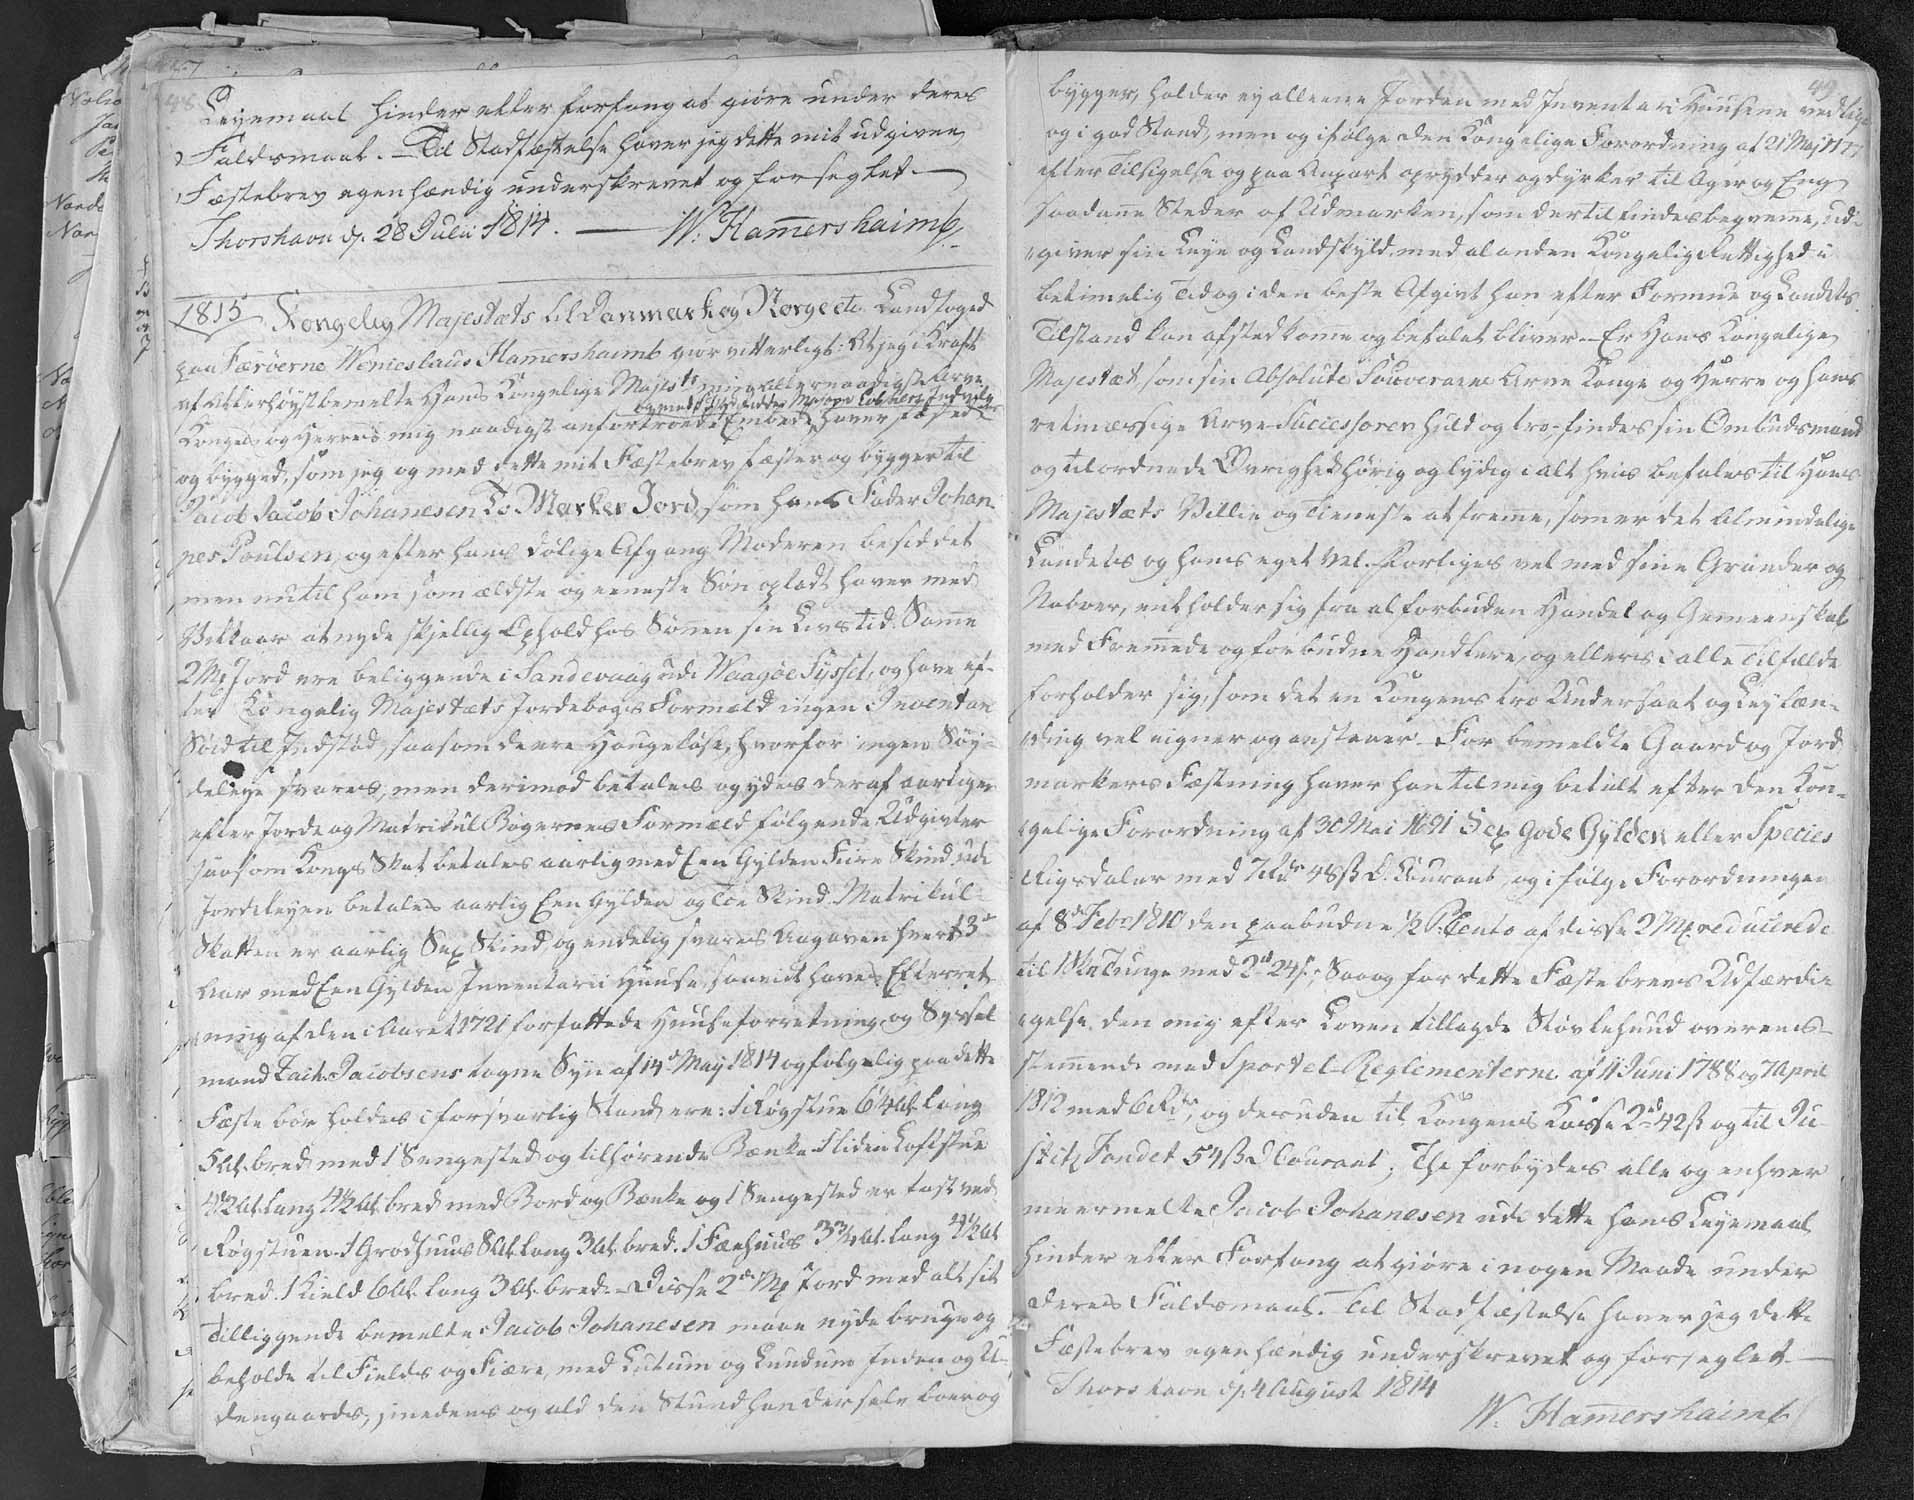 48.
Leyemaal Hinder eller forfang at giöre under deres
Faldsmaal. – Til Stadfæstelse haver jeg dette mit udgivne
Fæstebrev egenhændig underskrevet og forseglet. –
Thorshavn d. 28 Julii 1814. – W: Hamershaimb
1815 Kongelig Majestæts til Danmark og Norge etc. Landfoged
paa Færöerne Wenceslaus Hamershaimb giör vitterligt: At jeg i Kraft
af Allerhöystbemelte Hans Kongelige Majestæts min allernaadigste Arve
Konges og Herres mig naadigst anfortroede Embede haver fæsted
og bygged, som jeg og med dette mit Fæstebrev fæster og bygger til
Jacob Johanesen To Marker Jord, som hans Fader Johan-
nes Poulsen, og efter hans dölige Afgang Moderen besiddet
men nu til ham som ældste og eeneste Sön opladt haver med
Vilkaar at nyde skjellig Ophold hos Sönnen sin Livs tid. Same
2 Mk Jord ere beliggende i Sandevaag udi Waagöe Syssel, og have ef-
ter Kongelig Majestæts Jordebogs Formeld ingen Inventarii
Söid til Indstöd, saasom de ere Haugelöse, hvorfor ingen Söy-
deleye svares, men derimod betales og ydes deraf aarligen
efter Jorde og Matrikul Bögernes Formeld fölgende Udgivter
saasom Kongs Skat betales aarlig med Een Gylden Fiire Skind, udi
Jordeleyen betales aarlig Een Gylden og Toe Skind. Matrikul-
Skatten er aarlig Sex Skind og endelig svares Aagaven hvert 3de
Aar med Een Gylden. Inventarii Huuse, saavidt haves Efterret-
ning af den i Aaret 1721 forfattede Huuseforretning og Syssel
mand Zach: Jacobsens tagne Syn af 14de May 1814 og fölgelig paa dette
Fæste bör holdes i forsvarlig Stand, ere: 1 Rögstue 6¼ Al. lang
5 Al. bred med 1 Sengested og tilhörende Bænke. 1 liden Loftstue
4½ Al. lang 4½ Al. bred med Bord og Bænke og 1 Sengested er fast ved
Rögstuen. 1 Grodhuus 8 Al. lang 3 Al. bred. 1 Fæehuus 3¾ Al. lang 4½ Al.
bred. 1 Kield 6 Al. lang 3 Al. bred. – Disse 2de Mk Jord med alt sit
Tilliggende bemelte Jacob Johanesen maae nyde bruge og
beholde til Fields og Fiære, med Lutum og Lundum Inden og U-
dengaards, imedens og ald den Stund han der selv boer og
49.
bygger, holder ey alleene Jorden med Inventarii Huusene ved lige
og i god Stand, men og ifölge den Kongelige Forordning af 21 Maj 1777
efter Tilsigelse og paa Anpart oprydder og dyrker til Ager og Eng
saadane Steder af Udmarken, som dertil findes beqveme, ud-
giver sin Leye og Landskyld, med al anden Kongelig Rettighed i
betimelig Tid og i den beste Afgivt han efter Formue og Landets
Tilstand kan afsted kome og betalet bliver. – Er Hans Kongelige
Majestæt, som sin Absolute Souveraine Arve Konge og Herre og hans
retmæssige Arve-Successorer huld og tro, findes sin Ombudsmand
og tilordnede Övrighed hörig og lydig i alt hvis befales til Hans
Majestæts Villie og Tieneste at freme, som er det almindelige
Landets og hans eget Vel. Forliges vel med sine Grander og
Naboer, entholder sig fra al forbuden Handel og Gemeenskab
med Fremmede og forbudne Handlere, og ellers i alle Tilfælde
forholder sig, som det en Kongens tro Undersaat og Leylæn-
ding vel eigner og anstaaer. – For bemeldte Gaard og Jord
markers Fæstning haver han til mig betalt efter den Kon-
gelige Forordning af 30 Mai 1691 Sex gode Gylden eller Species
Rigsdaler med 7 Rdr 48 ß D. Courant, og ifölge Forordningen
af 8de Febr. 1810 den paabudne ½ P. Cento af disse 2 Mk reducerede
til 1 Tönde med 2rd 24 ß; Saaog for dette Fæste brevs Udfærdi-
gelse, den mig efter Loven tillagde Stövlehuud overens-
stemende med Sportel-Reglementerne af 11 Juni 1788 og 7 April
1812 med 6 Rdr, og desuden til Kongens Kasse 2rd 42 ß og til Ju-
stitz Fondet 54 ß D Courant; Thi forbydes alle og enhver
meermelte Jacob Johanesen udi dette hans Leyemaal
Hinder eller Forfang at giöre i nogen Maade under
deres Faldsmaal. – Til Stadfæstelse haver jeg dette
Fæstebrev egenhændig underskrevet og forseglet –
Thorshavn d. 4 August 1814
W. Hamershaimb